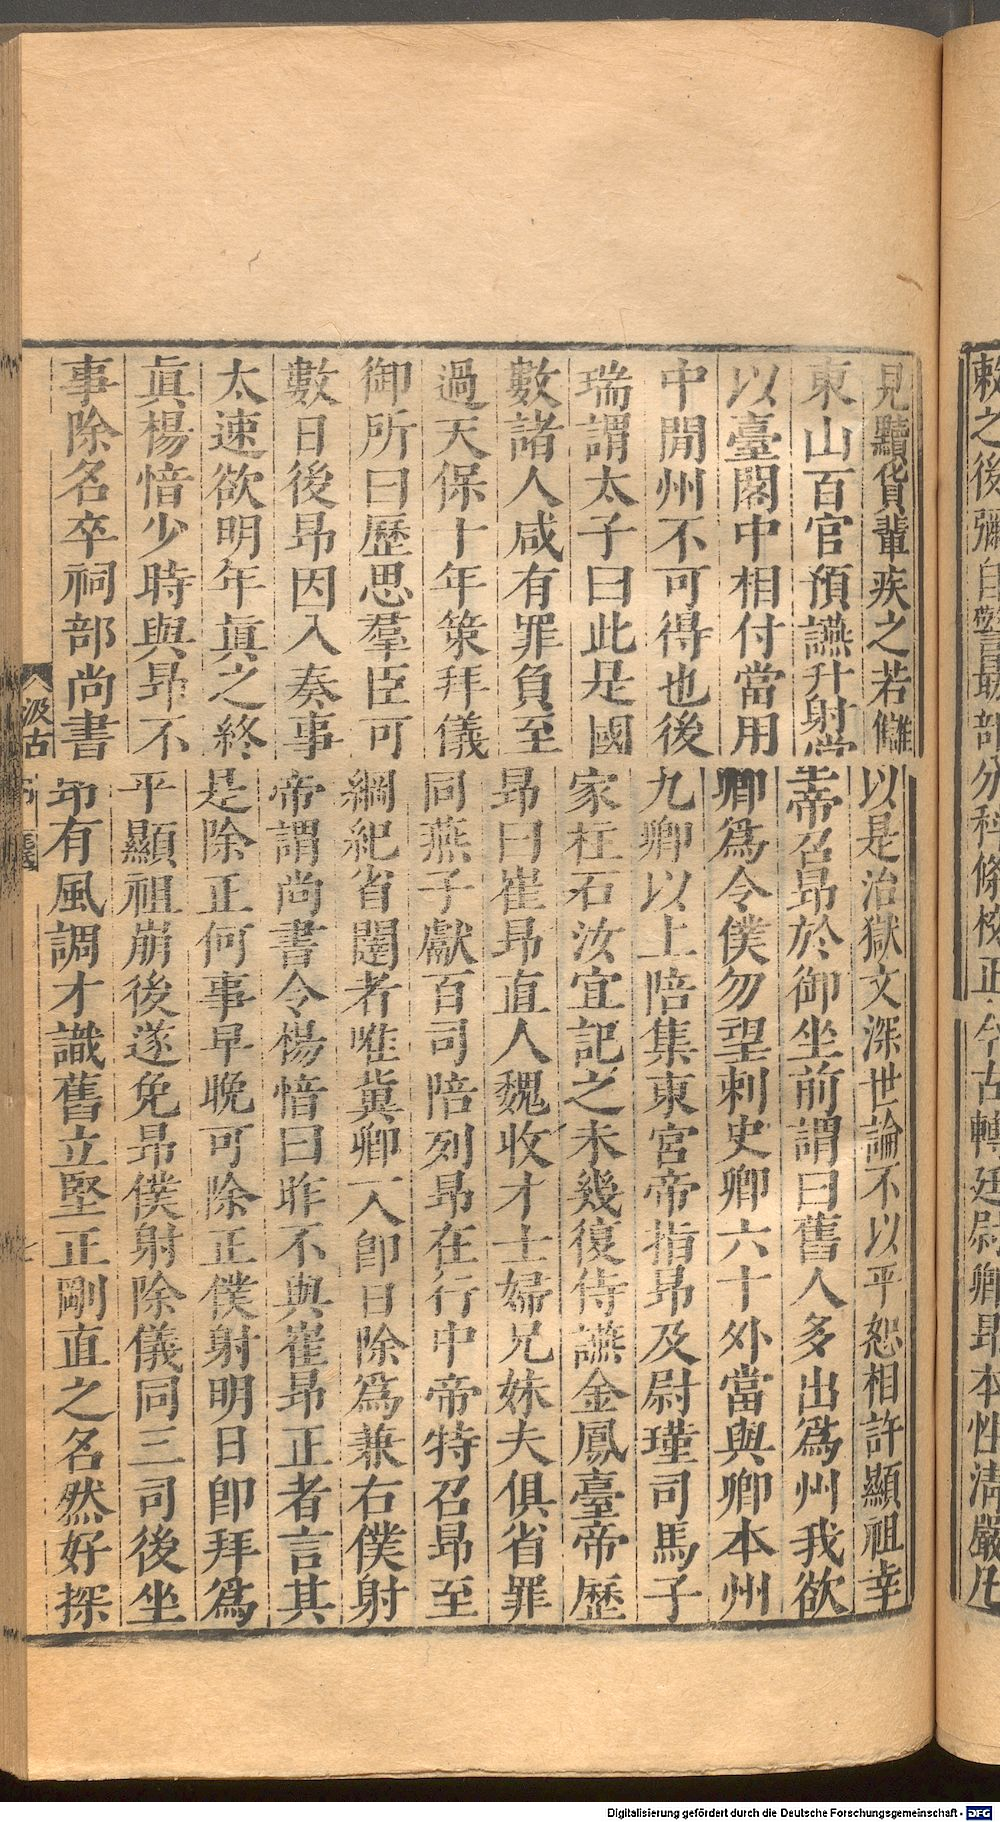 敕之後彌自警部分科條校正今古轉廷尉卿昂本性清嚴凡
見黷貨輩疾之若讎以是治獄文深世論不以平恕相許顯祖幸
東山百官預讌升射堂帝召昂於御坐前謂曰舊人多出爲州我欲
以臺閣中相付當用卿爲令僕勿望刺史卿六十外當與卿本州
中閒州不可得也後九卿以上陪集東宮帝指昂及尉瑾司馬子
瑞謂太子曰此是國家柱石汝宜記之未幾復侍讌金鳳臺帝歷
數諸人咸有罪負至昂曰崔昂直人魏收才士婦兄妹夫俱省罪
過天保十年策拜儀同燕子獻百司陪列昂在行中帝特召昂至
御所曰歷思羣臣可綱紀省闥者唯冀卿一人卽日除爲兼右僕射
數日後昂因入奏事帝謂尚書令楊愔曰昨不與崔昂正者言其
太速欲明年眞之終是除正何事早晚可除正僕射明日卽拜爲
眞楊愔少時與昂不平顯祖崩後遂免昂僕射除儀同三司後坐
事除名卒祠部尚書昂有風調才識舊立堅正剛直之名然好探
汲古
七
Digitalisierung gefördert durch die Deutsche Forschungsgemeinschaft - DFG